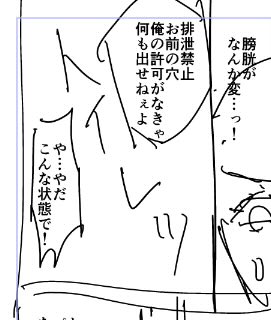 膀胱が
なんか変…っ！
排泄禁止
お前の穴
俺の許可がなきゃ
何も出せねぇよ
トイレッ
や…やだ
こんな状態で！